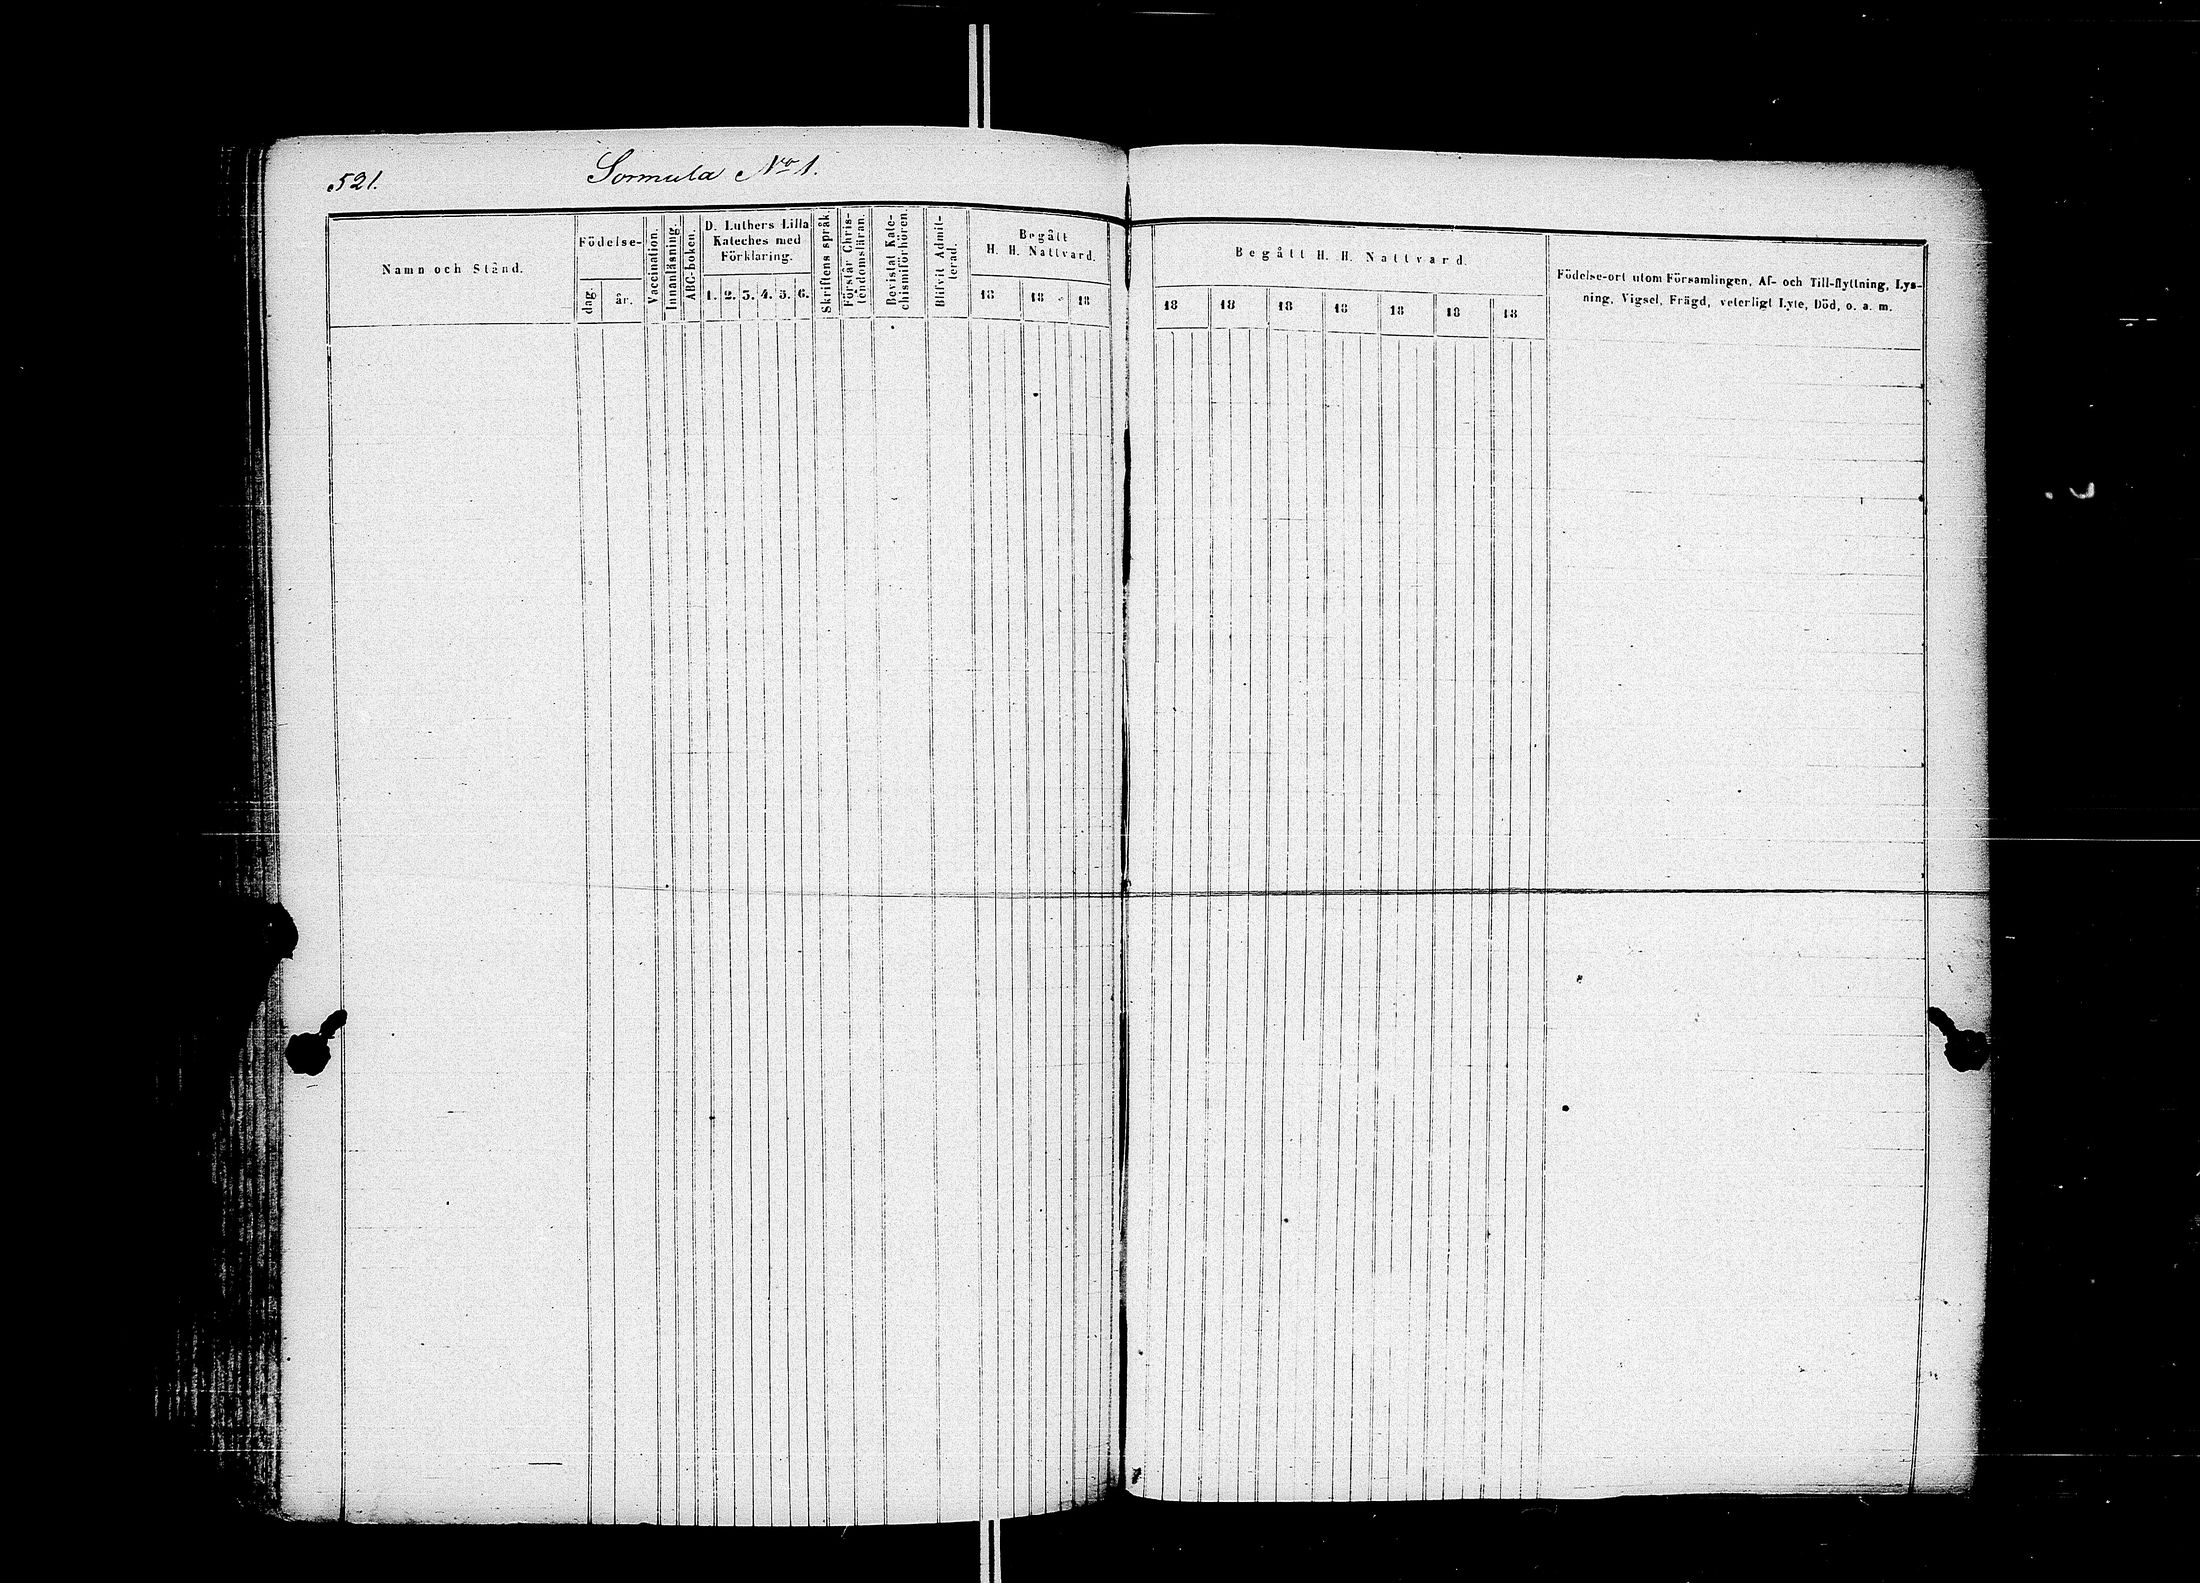 521. Sormula No 1.
Namn och Stånd.
Födelse-
dag.
år.
Vaccination.
Innanläsning.
ABC-boken.
D. Luthers Lilla
Kateches med
Förklaring.
1. 2. 3. 4. 5. 6.
Skriftens språk.
Förstår Chris-
tendomsläran.
Bevistat Kate-
chismiförhören.
Blifvit Admit-
terad.
Begått
H. H. Nattvard.
18 18 18
Begått H. H. Nattvard.
18 18 18 18 18 18 18
Födelse-ort utom Församlingen, Af- och Till-flyttning, Lys-
ning, Vigsel, Frägd, veterligt Lyte, Död, o. a. m.